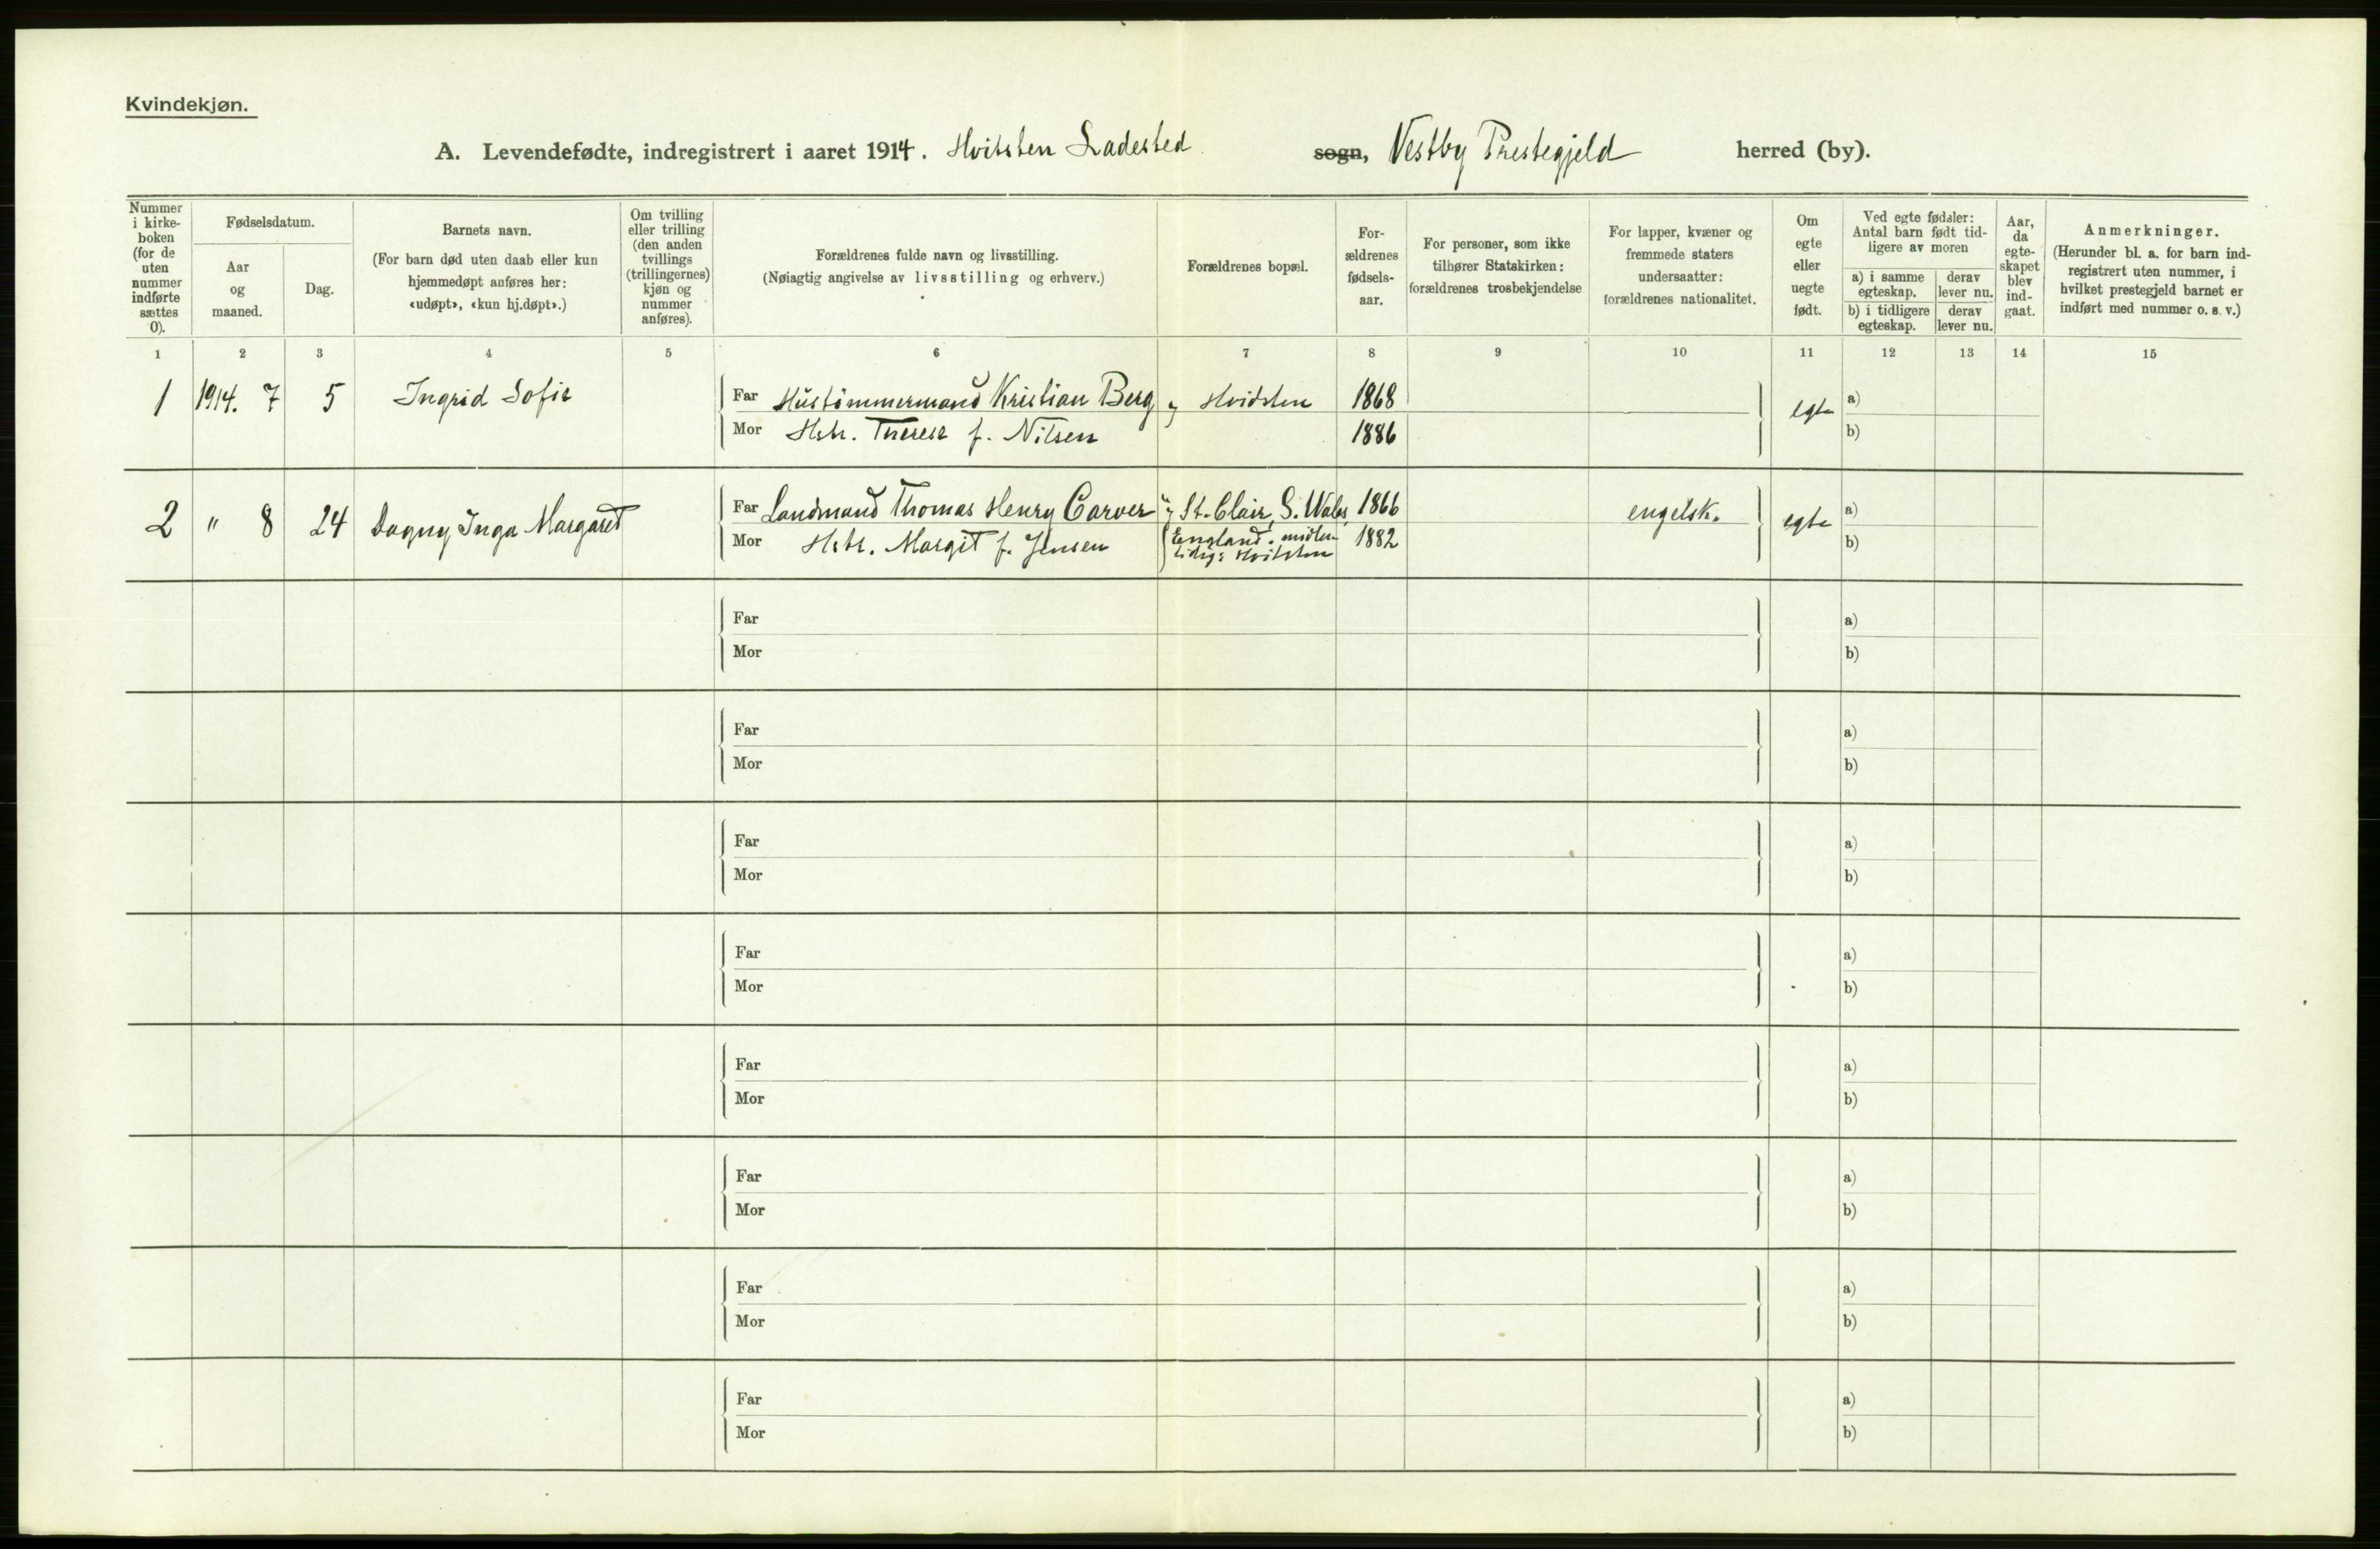 Kvindekjøn.
A. Levendefødte, indregistrert i aaret 1914. Hvitsten Ladested sogn, Vestby Prestegjeld herred (by).
Nummer i kirke-boken (for de uten nummer indførte sættes 0).
Fødselsdatum.
Aar og maaned.
Dag.
Barnets navn.
(For barn død uten daab eller kun hjemmedøpt anføres her: «udøpt», «kun hj.døpt».)
Om tvilling eller trilling (den anden tvillings (trillingernes) kjøn og nummer anføres).
Forældrenes fulde navn og livsstilling.
(Nøiagtig angivelse av livsstilling og erhverv.)
Forældrenes bopæl.
For-ældrenes fødsels-aar.
For personer, som ikke tilhører Statskirken: forældrenes trosbekjendelse
For lapper, kvæner og fremmede staters undersaatter: forældrenes nationalitet.
Om egte eller uegte født.
Ved egte fødsler: Antal barn født tid-ligere av moren
a) i samme egteskap.
derav lever nu.
b) i tidligere egteskap.
derav lever nu.
Aar, da egte-skapet blev ind-gaat.
Anmerkninger.
(Herunder bl. a. for barn ind-registrert uten nummer, i hvilket prestegjeld barnet er indført med nummer o. s. v.)
1 2 3 4 5 6 7 8 9 10 11 12 13 14 15
1 1914. 7 5 Ingrid Sofie Far Hustømmermand Kristian Berg Hvidsten 1868 egte a)
Mor Hstr. Therese f. Nilsen 1886 b)
2 " 8 24 Dagny Inga Margaret Far Landmand Thomas Henry Carver St. Clair, S. Wales 1866 engelsk. egte a)
Mor Hstr. Margit f. Jensen England. midlen 1882 b)
tidig: Hvitsten
Far a)
Mor b)
Far a)
Mor b)
Far a)
Mor b)
Far a)
Mor b)
Far a)
Mor b)
Far a)
Mor b)
Far a)
Mor b)
Far a)
Mor b)